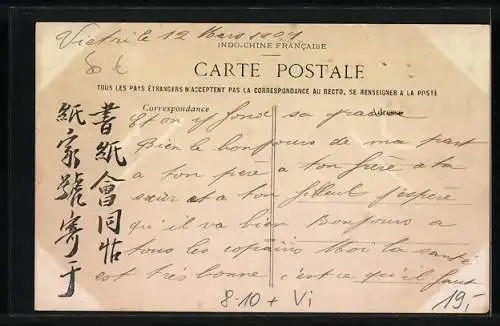 Vietri le 12 Mars 1909
INDO-CHINE FRANÇAISE
CARTE POSTALE
TOUS LES PAYS ÉTRANGERS N'ACCEPTENT PAS LA CORRESPONDANCE AU RECTO, SE RENSEIGNER A LA POSTE
Correspondance
Adresse
Et on y fond sa
Bien le bonjours de ma part
a ton père a ton frère a ta
sœur et a ton filleul j'espère
qu'il va bien Bonjours a
tous les copains Moi la santé
est très bonne c'est ce qu'il faut
書紙會同帖
紙家號寄于
8-10 + Vi
19,-